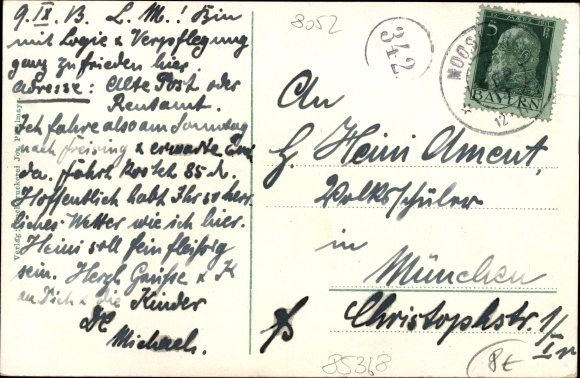 8052
9. IX. B. L. M.! Bin
mit Logie & Verpflegung
ganz zufrieden hier.
Adresse: Alte Post oder
Rentamt.
Ich fahre also am Sonntag
nach Freising & erwarte
da. Fahrt kostet 85 d.
Hoffentlich habt Ihr so herr-
liches Wetter wie ich hier.
Heini soll fein fleißig
sein. Herzl Grüße & K
an Dich & die Kinder
Michael.
342
5
BAYERN
12
An
H. Heini Ament,
Volksschüler
in
München
Christophstr. 1/I r
85368
8E